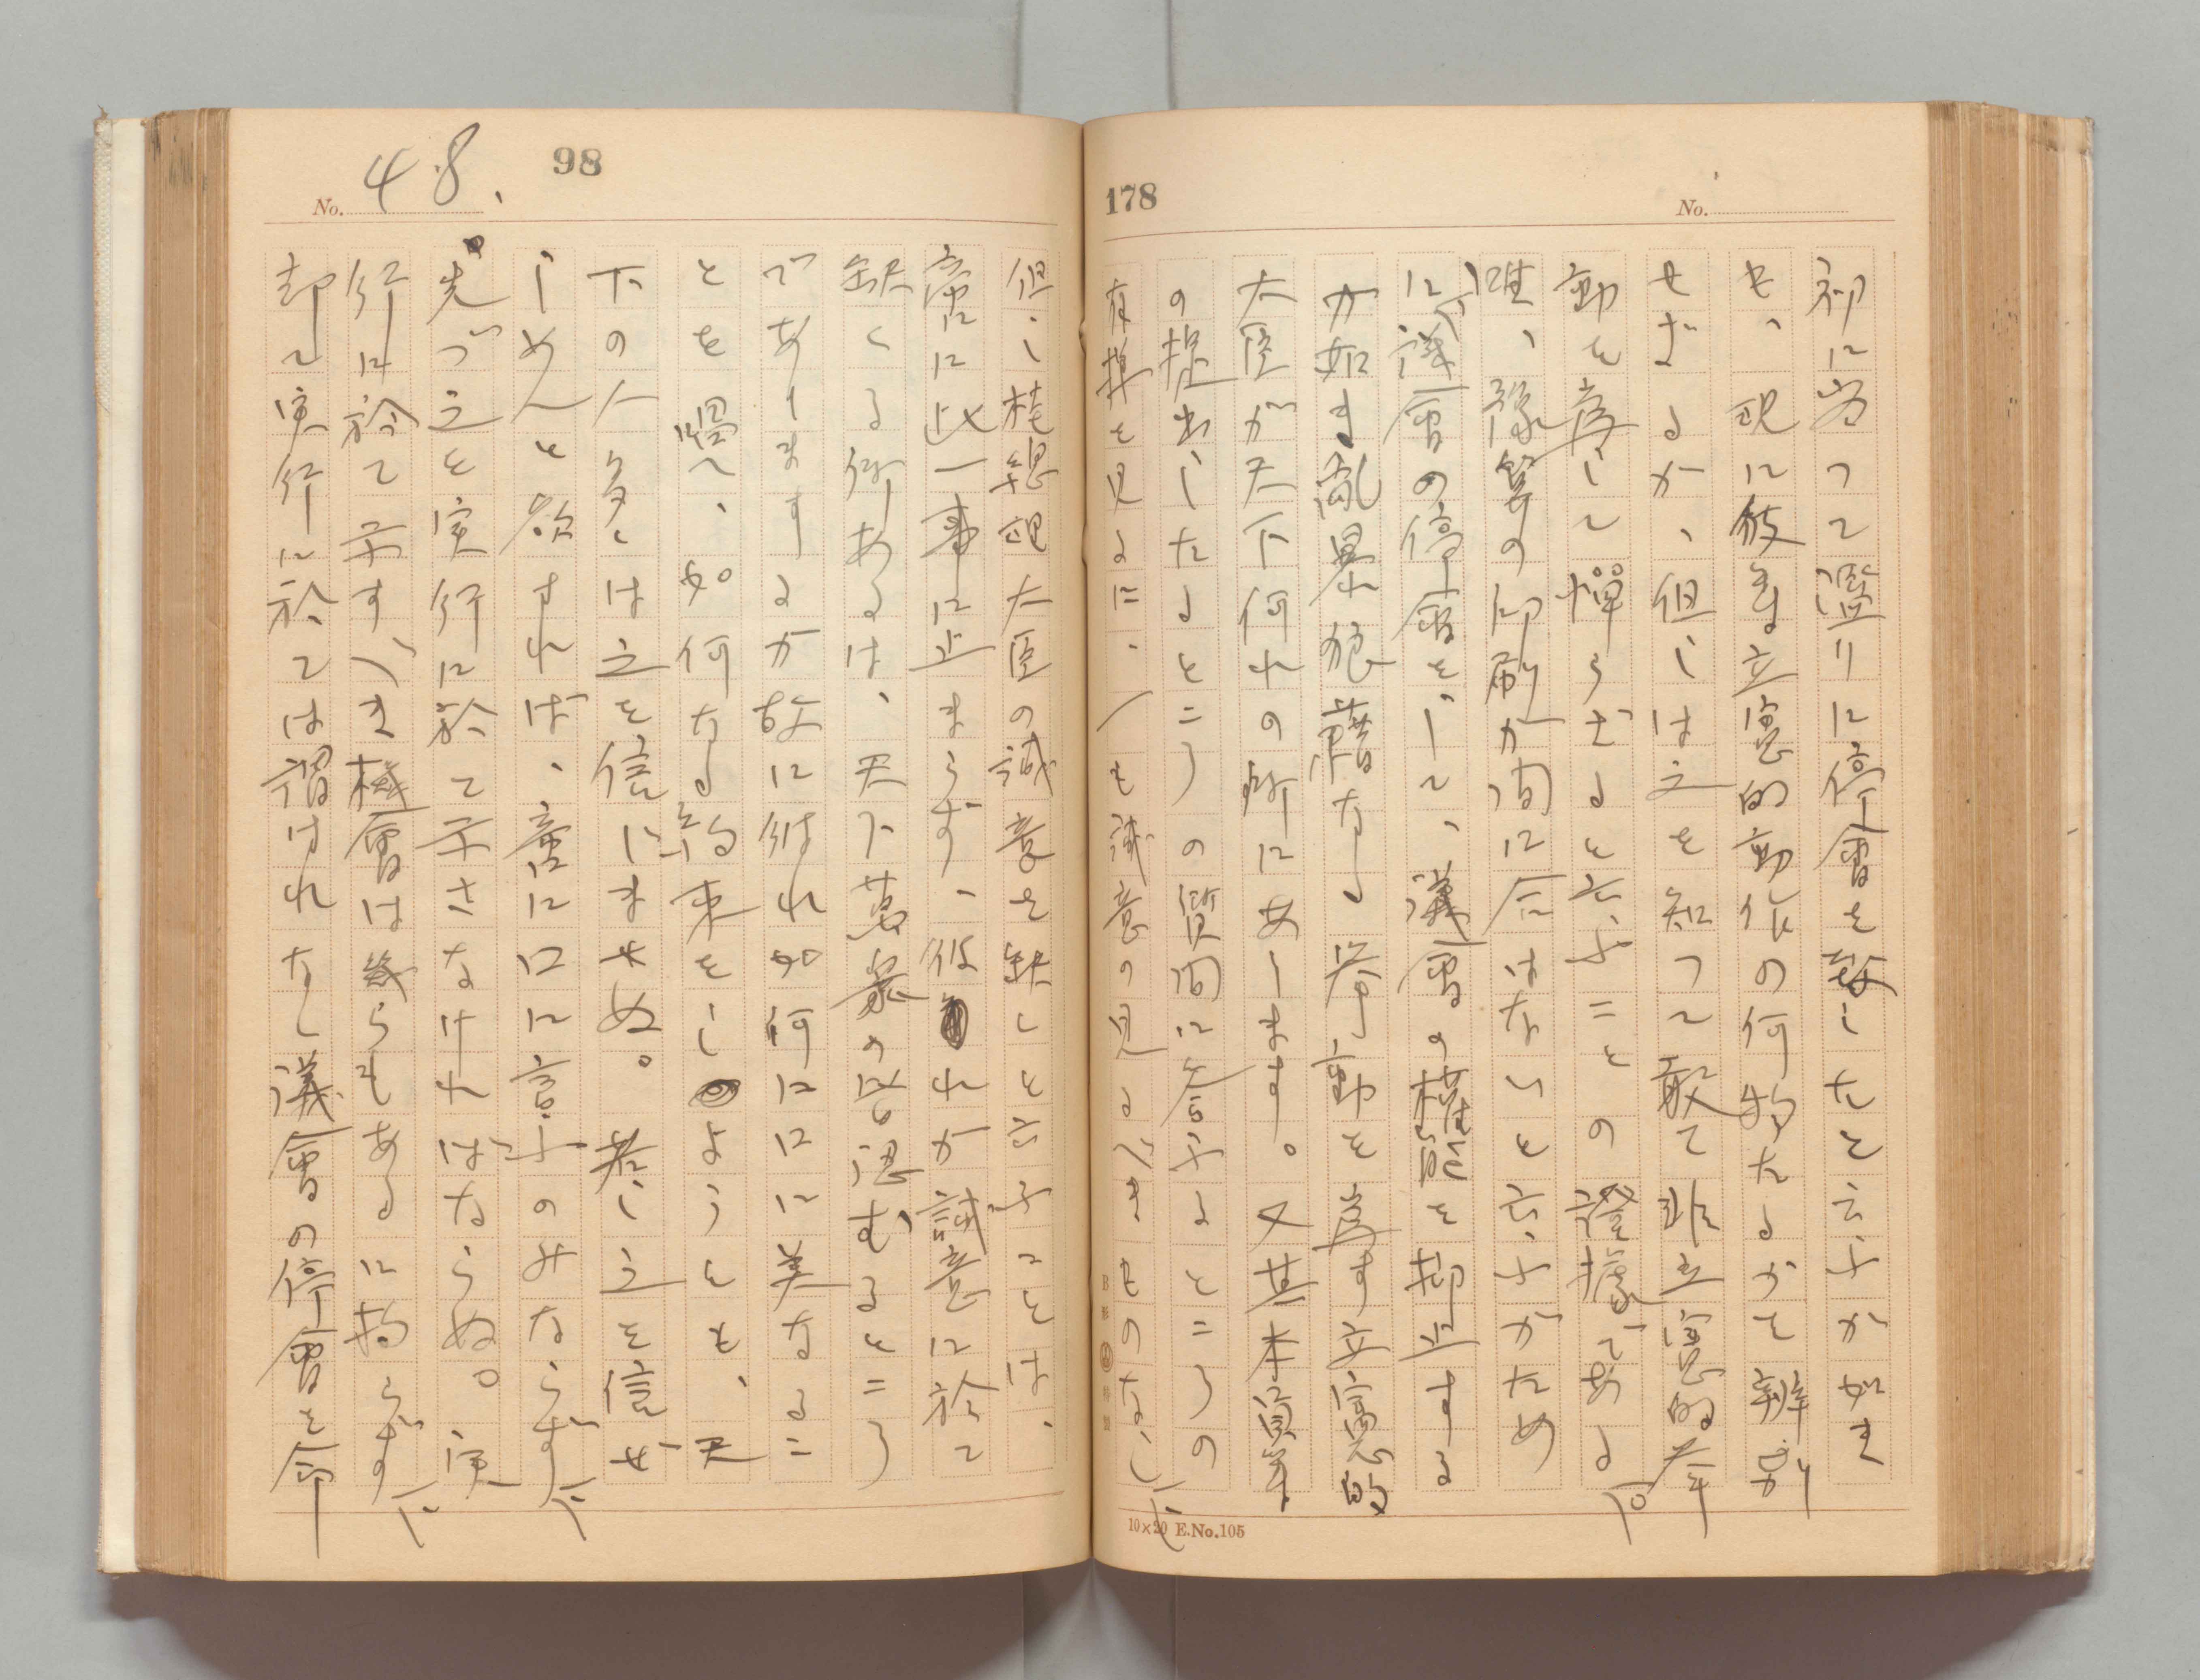 178
No.
初に当つて濫りに停會を報したと云ふか如き
も、現に彼我立憲的動作の何物たるかを辨別
せざるか、但しは之を知つて敢て非立憲的挙
動を為して憚らざると云ふことの證據である。
唯、豫算の印刷が間に合はないと云ふがため
に、議會の停會をして、議會の権能を抑止する
か如き乱暴狼藉なる挙動を為す立憲的
大臣が天下何れの所にあります。又其未質等
の提出したるところの質問に答ふるところの
有様を見るに、一も誠意の見るべきものなし。
B形 特製
10×20 E.No.105
98
No. 48、
但し桂総理大臣の誠意を缺くと云ふことは、
啻に此一事に止まらず、彼れが誠意に於て
缺くる所あるは、天下萬衆の皆認むるところ
でありまするが故に彼れ如何にに美なるこ
とを唱へ、如何なる約束をしようとも、天
下の人多くは之を信じませぬ。若し之を信ぜ
しめんと欲すれば、啻に口に言ふのみならず、
先づ之を実行に於て示さなければならぬ。実
行に於て示すべき機會は幾らもあるに拘らず、
却て実行に於ては謂はれなく議會の停會を命